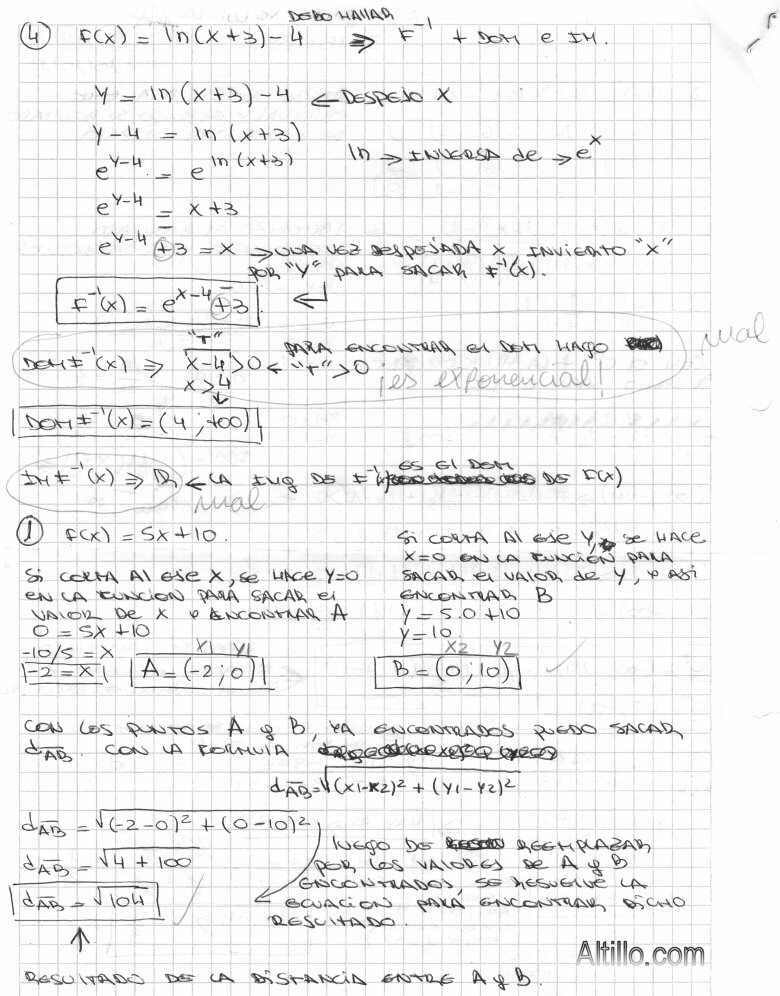 DEBO HALLAR
④ F(x) = ln(x+3)-4 ⇒ F⁻¹ + DOM e IM.
y = ln(x+3)-4 ← DESPEJO X
y-4 = ln(x+3)
e^(y-4) = e^(ln(x+3)) ln → INVERSA de → e^x
e^(y-4) = x+3
e^(y-4) + 3 = x → UNA VEZ DESPEJADA X, INVIERTO "X"
POR "Y" PARA SACAR F⁻¹(x).
F⁻¹(x) = e^(x-4) + 3
"T"
DOM F⁻¹(x) ⇒ x-4>0 ← PARA ENCONTRAR El DOM HAGO
"T" >0
mal
x>4 ¡es exponencial!
DOM F⁻¹(x) = (4 ; +∞)
IM F⁻¹(x) ⇒ ℝ ← LA IMG DE F⁻¹ ES El DOM DE F(x)
mal
① F(x) = 5x+10.
Si CORTA Al EJE X, SE HACE Y=0
EN LA FUNCION PARA SACAR El
VALOR DE X y ENCONTRAR A
0 = 5x+10
-10/5 = x
-2 = x
x1 y1
A = (-2 ; 0)
Si CORTA Al EJE Y, SE HACE
X=0 EN LA FUNCION PARA
SACAR El VALOR de Y, y ASI
ENCONTRAR B
Y = 5.0 +10
Y = 10.
x2 y2
B = (0 ; 10)
CON LOS PUNTOS A y B, YA ENCONTRADOS PUEDO SACAR
dAB. CON LA FORMULA
dAB = √(x1-x2)² + (y1-y2)²
dAB = √(-2-0)² + (0-10)²
dAB = √4 + 100
dAB = √104
LUEGO DE REEMPLAZAR
POR LOS VALORES DE A y B
ENCONTRADOS, SE RESUELVE LA
ECUACION PARA ENCONTRAR DICHO
RESULTADO.
Altillo.com
RESULTADO DE LA DISTANCIA ENTRE A y B.